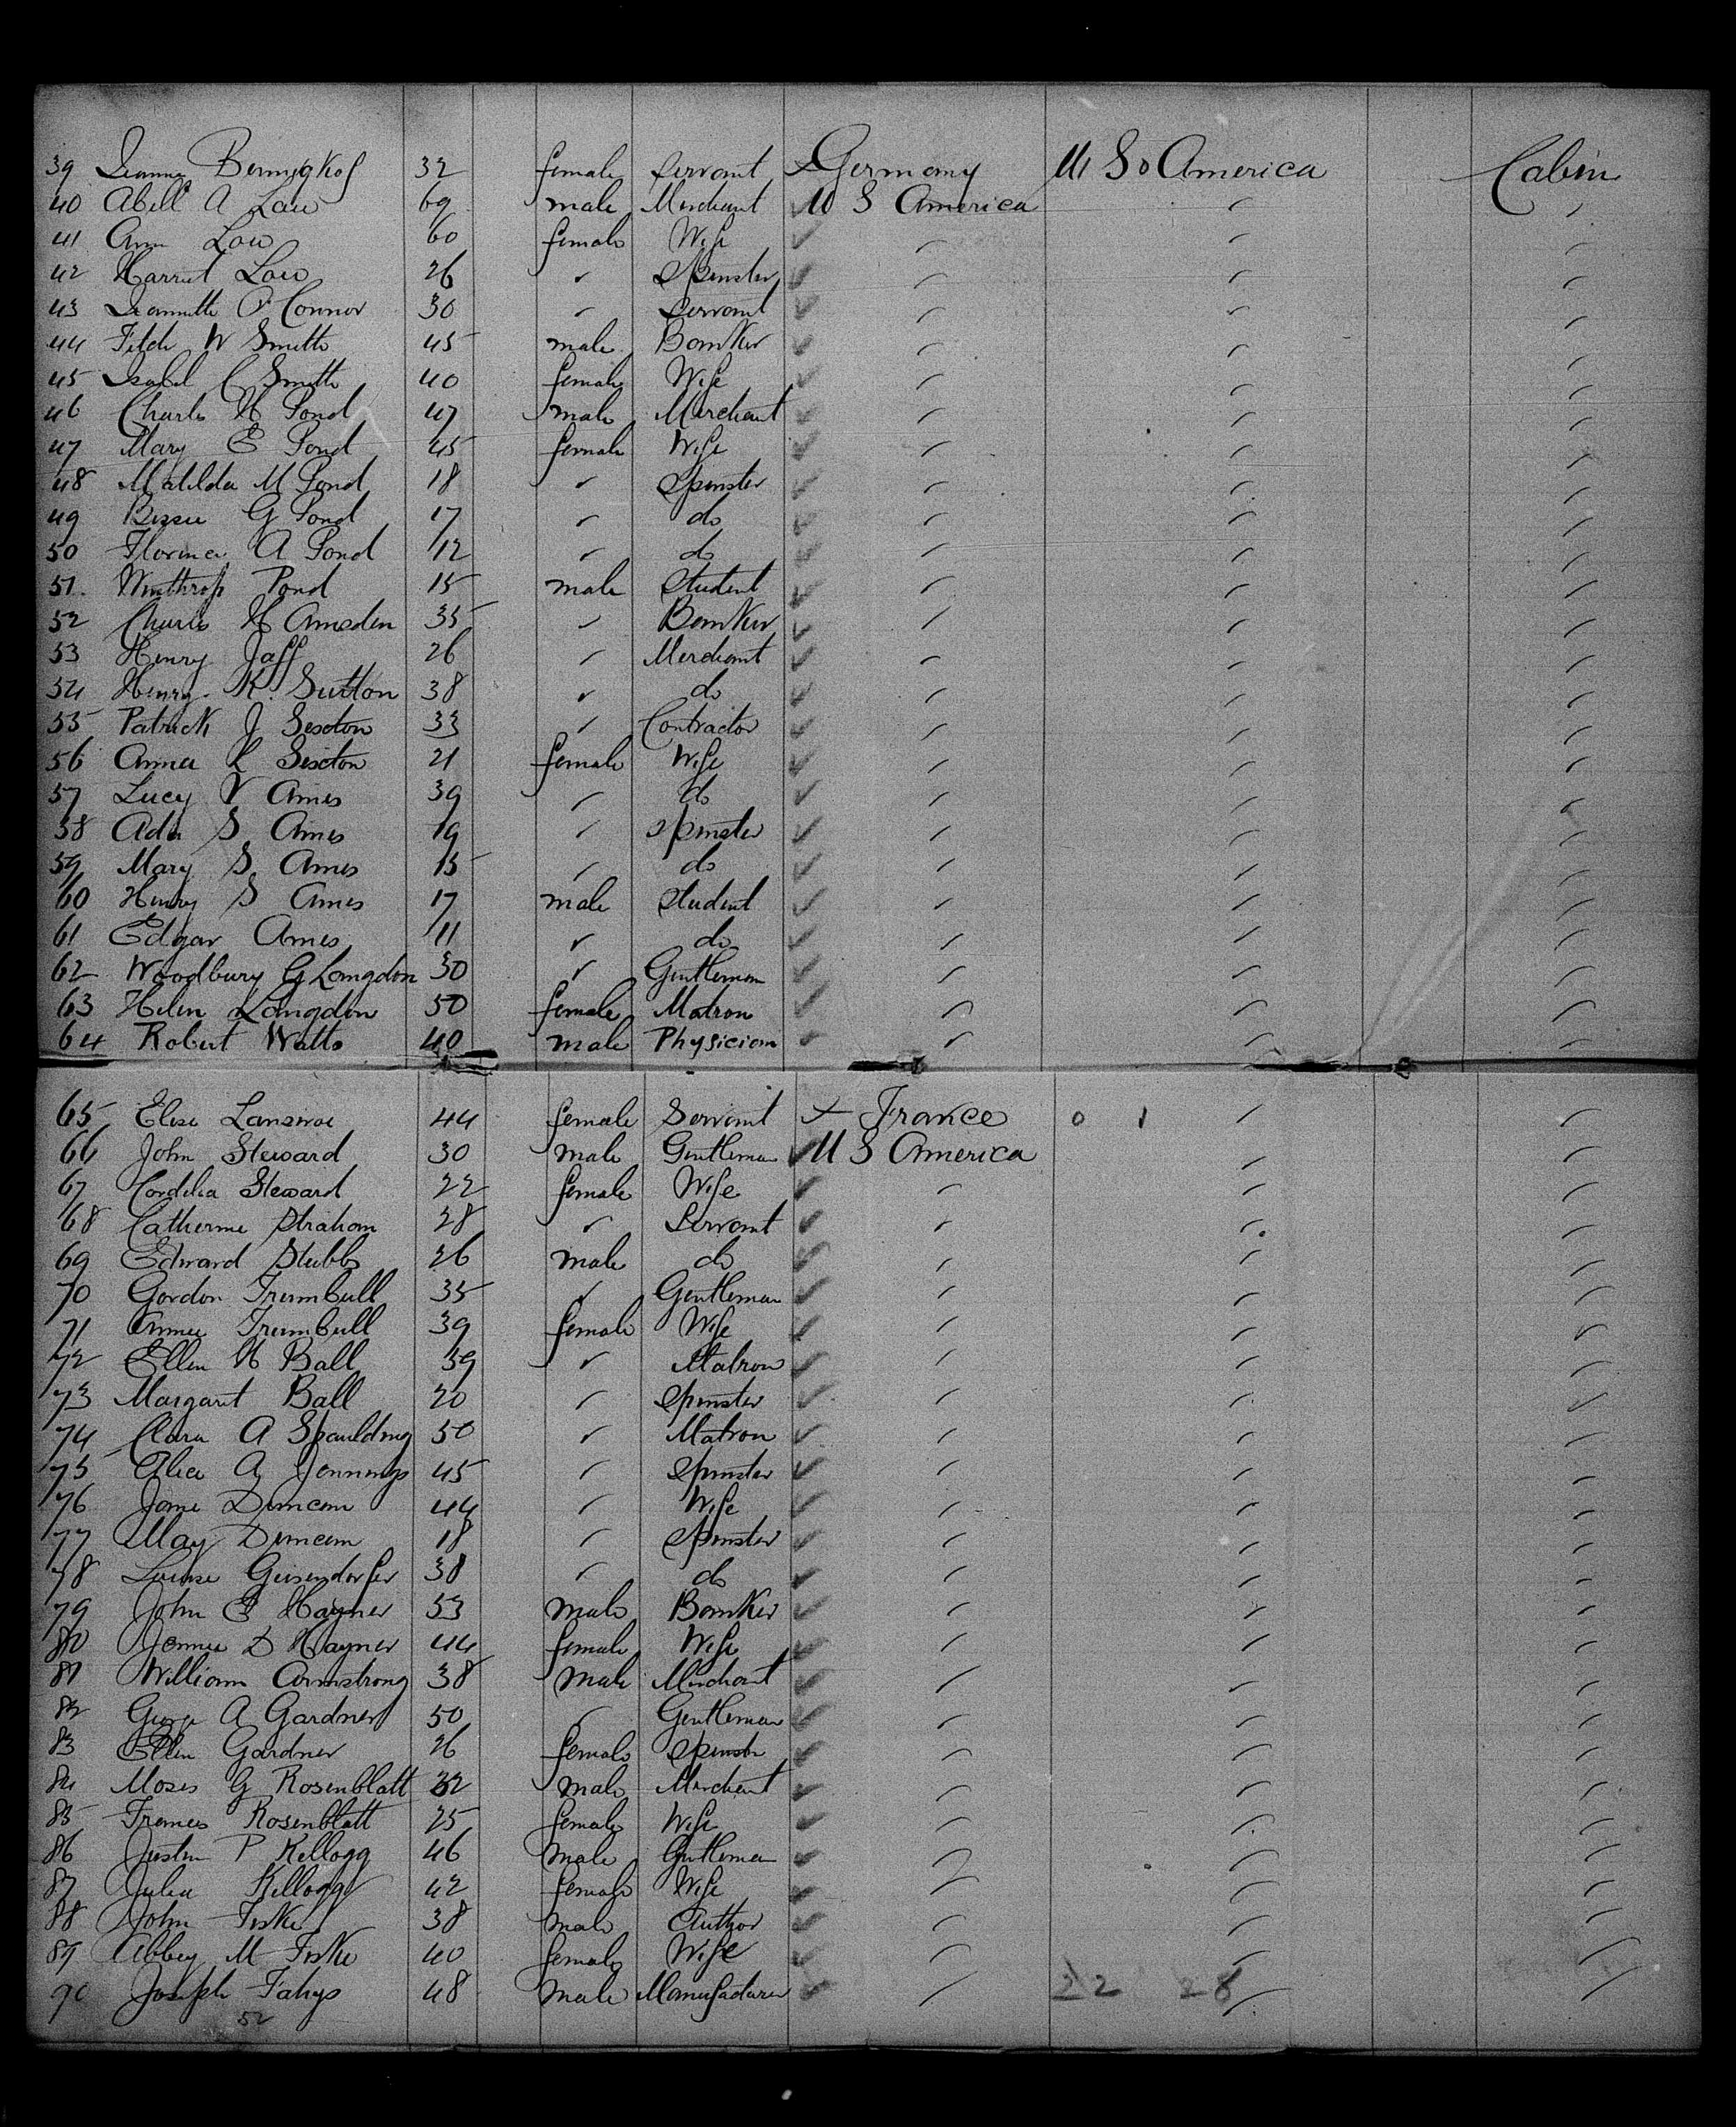 39 32 female Servant Germany U So America Cabin
40 Abell A Low 69 male Merchant U S America
41 Ann Low 60 female Wife
42 Harriet Low 26 Spinster
43 Jeannette O Connor 30 Servant
44 Fitch W Smith 45 male Banker
45 Isabel C Smith 40 female Wife
46 Charles H Pond 47 male Merchant
47 Mary E Pond 45 female Wife
48 Matilda M Pond 18 Spinster
49 Bessie G Pond 17 do
50 Florence A Pond 12 do
51. Winthrop Pond 15 male Student
52 Charles H Amsden 35 Banker
53 Henry Jaff 26 Merchant
54 Henry K. Sutton 38 do
55 Patrick J Sexton 33 Contractor
56 Anna L Sexton 21 female Wife
57 Lucy V Ames 39 do
58 Ada S Ames 19 Spinster
59 Mary S. Ames 15 do
60 Henry S Ames 17 male Student
61 Edgar Ames 11 do
62 Woodbury G Langdon 30 Gentleman
63 Helen Langdon 50 female Matron
64 Robert Watts 40 male Physician
65 Elise 44 female Servant France 0 1
66 John Steward 30 male Gentleman U S America
67 Cordelia Steward 22 female Wife
68 Catherine Strahan 28 Servant
69 Edward Stubbs 26 male do
70 Gordon Trumbull 35 Gentleman
71 Annie Trumbull 39 female Wife
72 Ellen H Ball 39 Matron
73 Margaret Ball 20 Spinster
74 Clara A Spaulding 50 Matron
75 Alice A Jennings 45 Spinster
76 Jane Duncan 44 Wife
77 May Duncan 18 Spinster
78 Louise Geisendorfer 38 do
79 John E Hayner 53 male Banker
80 Jennie D Hayner 44 female Wife
81 William Armstrong 38 male Merchant
82 George A Gardner 50 Gentleman
83 Ellen Gardner 26 female Spinster
84 Moses G Rosenblatt 32 male Merchant
85 Frances Rosenblatt 25 female Wife
86 Justin P Kellogg 46 male Gentleman
87 Julia Kellogg 42 female Wife
88 John Fiske 38 male Author
89 Abbey M Fiske 40 female Wife
90 Joseph Fahys 48 male Manufacturer 22 28
52